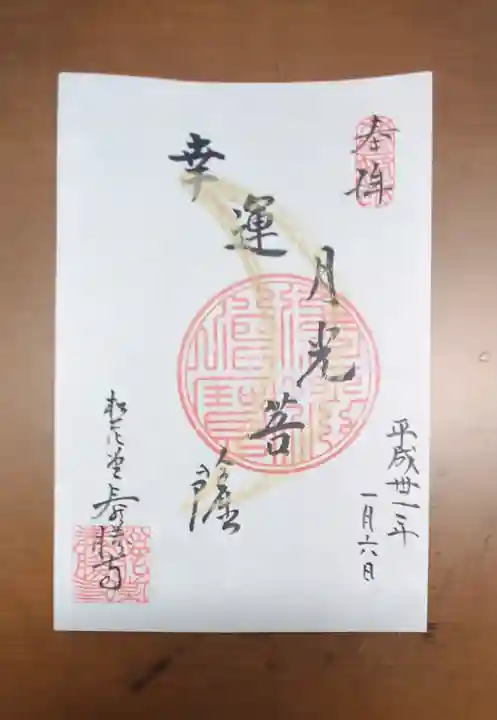 奉拝
平成卅一年
一月六日
幸運月光菩薩
松花堂泰勝寺